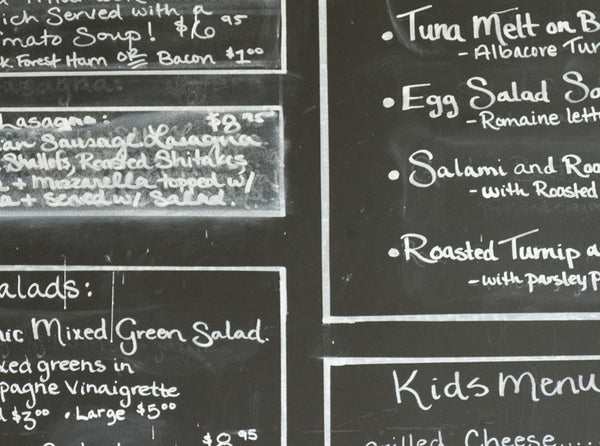 ich Served with a
omato Soup! $6.95
k Forest Ham or Bacon $1.00
Lasagna: $8.95
an Sausage Lasagna
Shallots, Roasted Shitakes
+ Mozzarella topped w/
a + served w/ Salad.
alads:
nic Mixed Green Salad.
xed greens in
pagne Vinaigrette
$3.00 • Large $5.00
$8.95
• Tuna Melt on B
- Albacore Tun
• Egg Salad Sa
- Romaine lett
• Salami and Roa
- with Roasted
• Roasted Turnip a
- with parsley p
Kids Menu
Grilled Cheese....